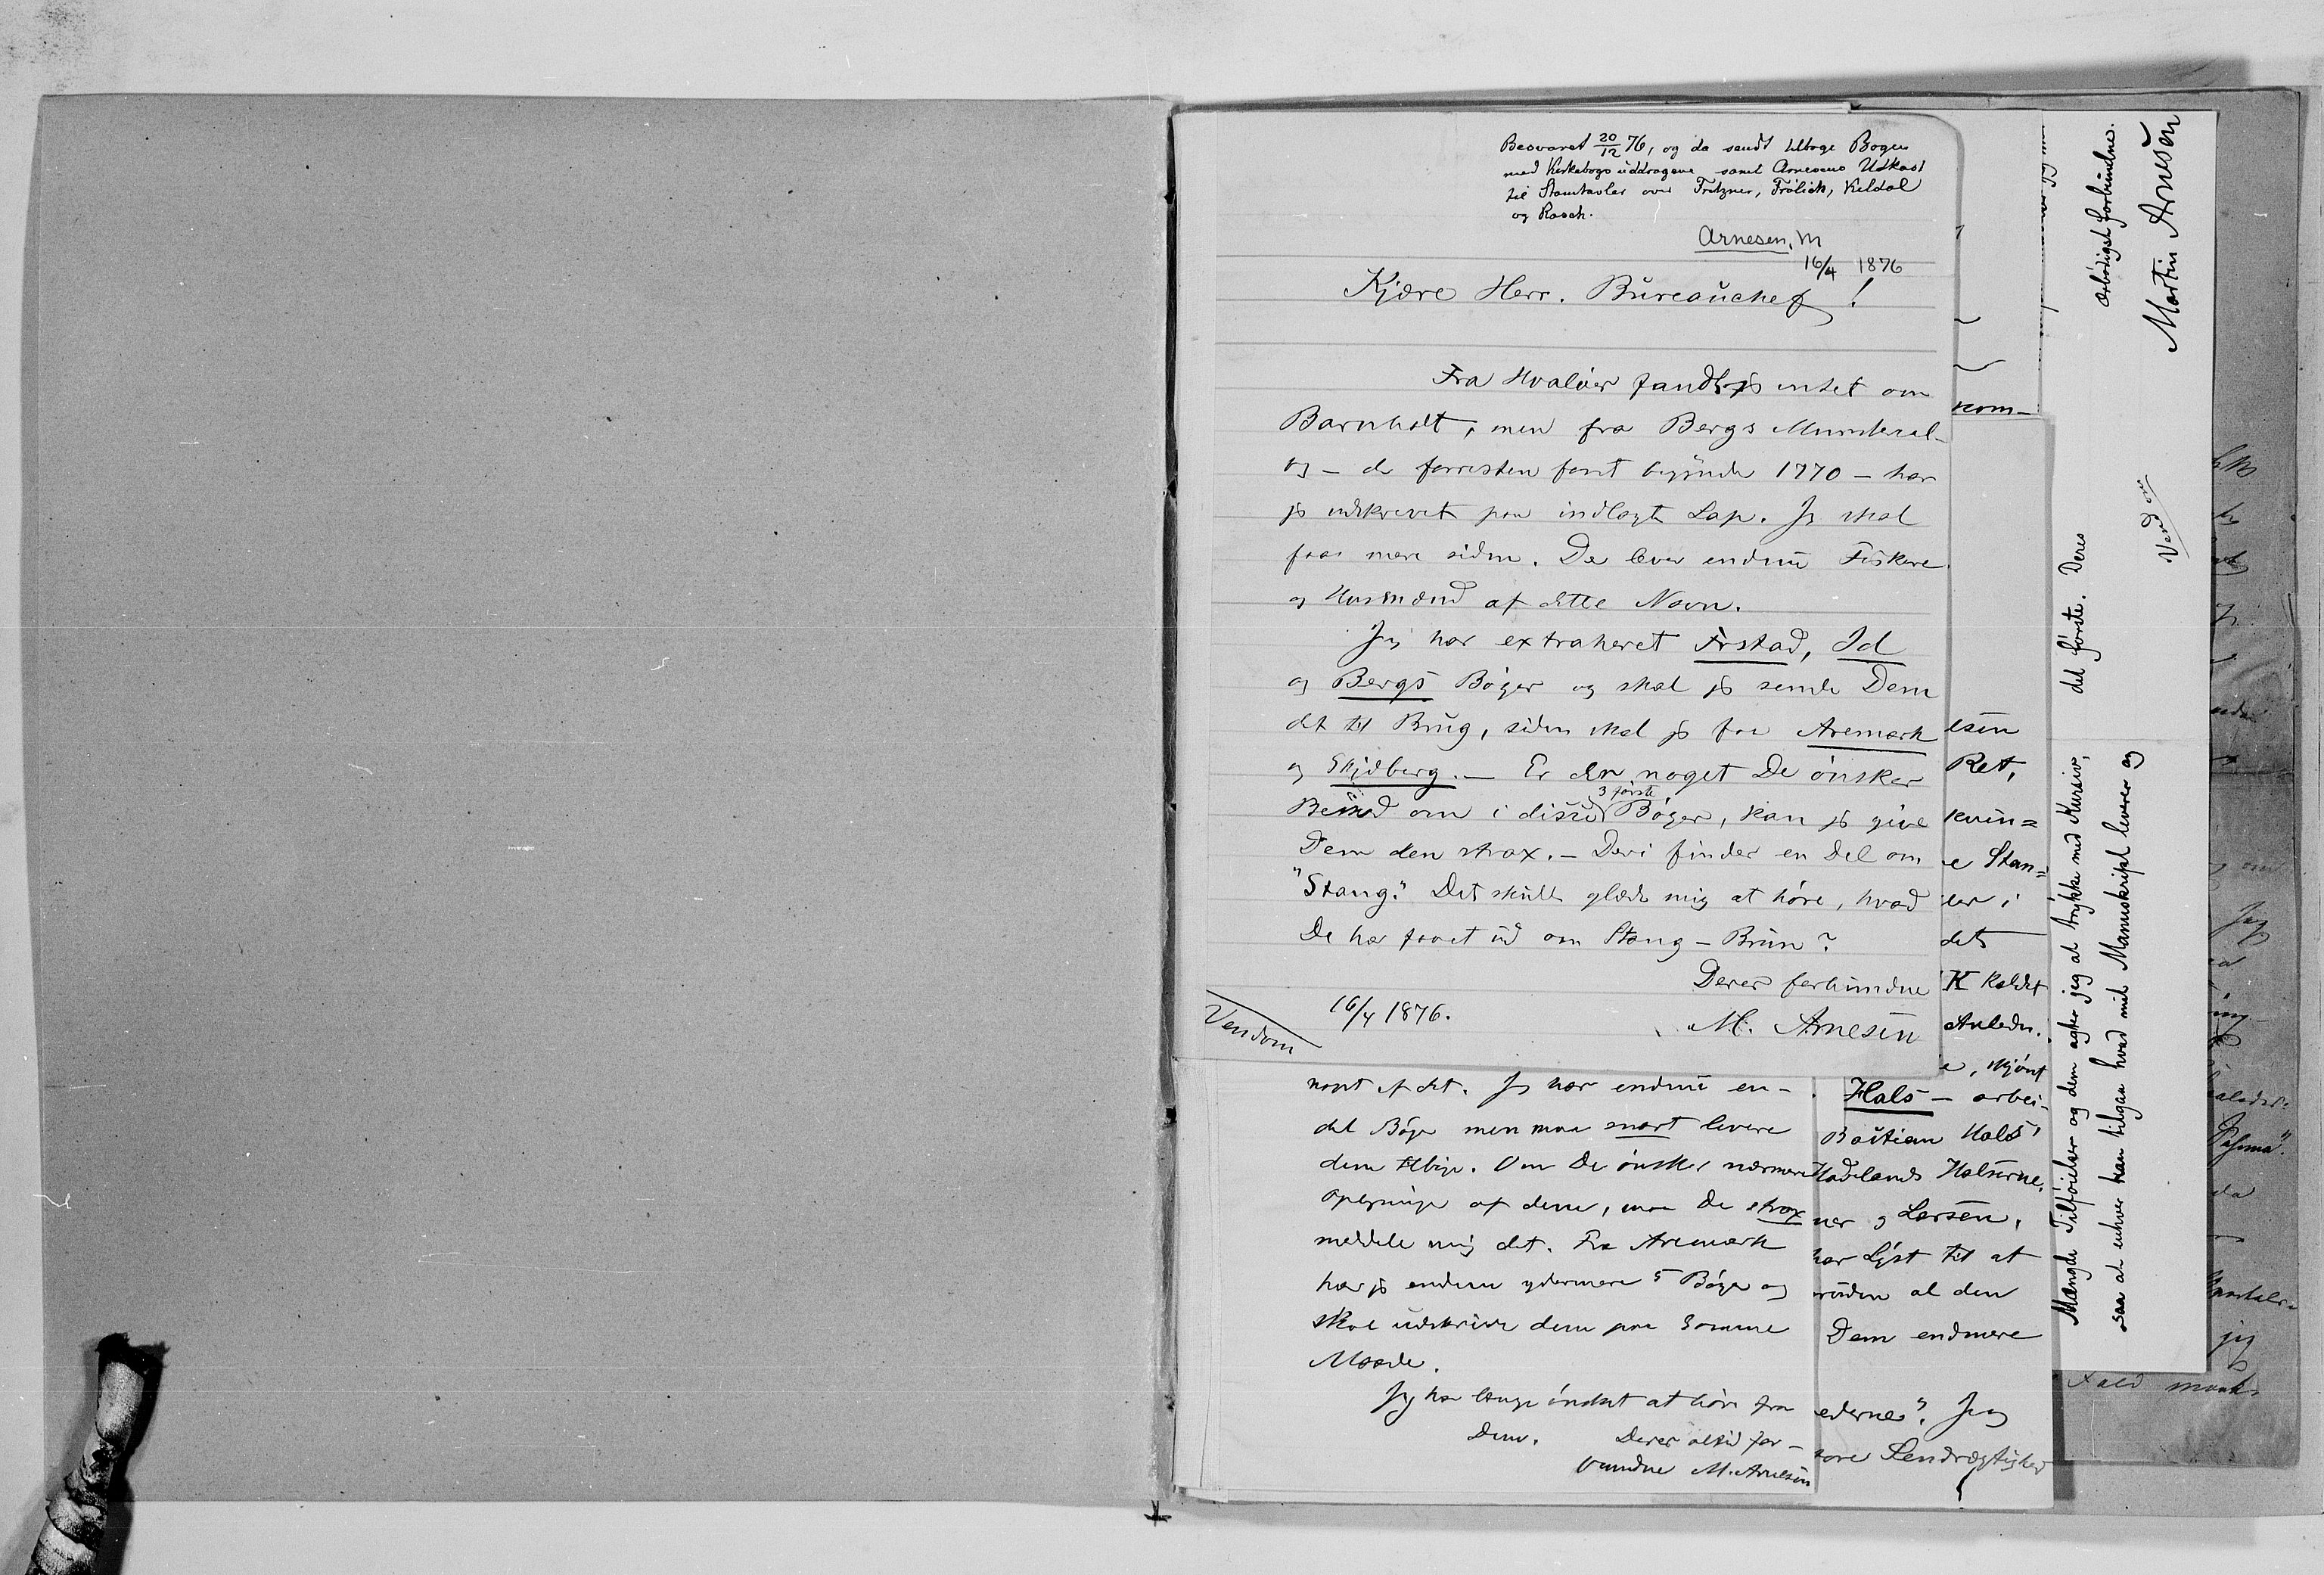 Besvaret 20/12 76, og da sendt tilbage Bogen
med Kirkebogsuddragene samt Arnesens Udkast
til Stamtavler over Fritzner, Frölich, Keldal
og Rasch.
Arnesen, M
16/4 1876
Kjære Herr. Bureauchef!
Fra Hvaløer fandt jeg intet om
Barnholt, men fra Bergs Ministerial-
og - de forresten først begynde 1770 - har
jeg udskrevet paa indlagte Lap. Jeg skal
faa mere siden. De lever endnu Fiskere
og Husmænd af dette Navn.
Jeg har extraheret Ørstad, Id
og Bergs Bøger og skal jeg sende Dem
det til Brug, siden skal jeg faa Aremark
og Skjeberg. - Er der noget De ønsker
Besked om i disse 3 første Bøger, kan jeg give
Dem den strax. - Deri finder en Del om
"Stang." Det skulle glæde mig at høre, hvad
De har faaet ud om Stang - Brun?
Deres forbundne
16/4 1876.
M. Arnesen
Vend om
noget af det. Jeg har endnu en-
del Bøger men maa snart levere
dem tilbage. Om De ønsker nærmere
Opgaver af dem, maa De strax
meddele mig det. Fra Aremark
har jeg endnu ydermere 5 Bøger og
skal udskrive dem paa samme
Maade.
Jeg har længe ønsket at høre fra
Dem. Deres altid for-
bundne M. Arnesen
kom-
elsen
Ret,
kvin=
e Stan=
ler i
det
K kaldet
Anledn.
e, skjønt
Hals - arbei-
Bastian Hals'
Hadelands Halserne,
ner og Larsen,
har Lyst til at
uden al den
Dem endmere
edernes". Jeg
vore Sendrægtighed
Mængde Tilføielser og dem agter jeg at trykke med Kursiv,
saa at enhver kan tilgaa hvad mit Manuskript leverer og
det første. Deres
ærbødigst forbundne.
Martin Arnesen
Vend om
jeg
da
Jeg